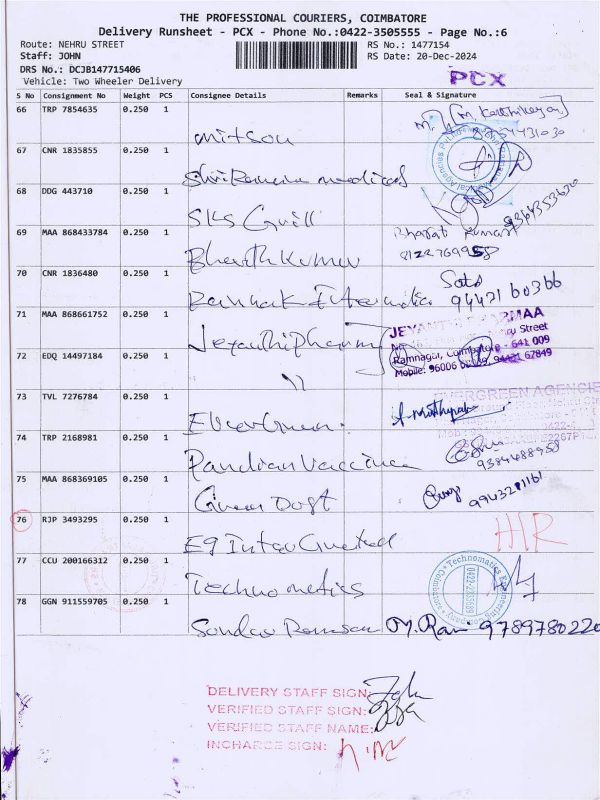 THE PROFESSIONAL COURIERS, COIMBATORE
Delivery Runsheet - PCX - Phone No.:0422-3505555 - Page No.:6
Route: NEHRU STREET
RS No.: 1477154
Staff: JOHN
RS Date: 20-Dec-2024
DRS No.: DCJB147715406
Vehicle: Two Wheeler Delivery
PCX
S No Consignment No Weight PCS Consignee Details Remarks Seal & Signature
66 TRP 7854635 0.250 1
mitsou
M. Karthikeyan
67 CNR 1835855 0.250 1
medical
68 DDG 443710 0.250 1
SKS Grill
9364353670
69 MAA 868433784 0.250 1
Bharath Kumar
Bharat Kumar
8122769958
70 CNR 1836480 0.250 1
India
94421 60366
71 MAA 868661752 0.250 1
Jeyanthi Pharma
JEYANTHI PHARMAA
Street
Ramnagar, Coimbatore - 641 009
Mobile: 96006 94431 67849
72 EDQ 14497184 0.250 1
"
73 TVL 7276784 0.250 1
Evergreen
EVERGREEN AGENCIES
74 TRP 2168981 0.250 1
Pandian Vaccines
9384688958
75 MAA 868369105 0.250 1
Green Dost
9943291161
76 RJP 3493295 0.250 1
HR
77 CCU 200166312 0.250 1
Technometics
Technomatics Engineering Company
Coimbatore
78 GGN 911559705 0.250 1
M. Ram 9789780220
DELIVERY STAFF SIGN:
VERIFIED STAFF SIGN:
VERIFIED STAFF NAME:
INCHARGE SIGN: